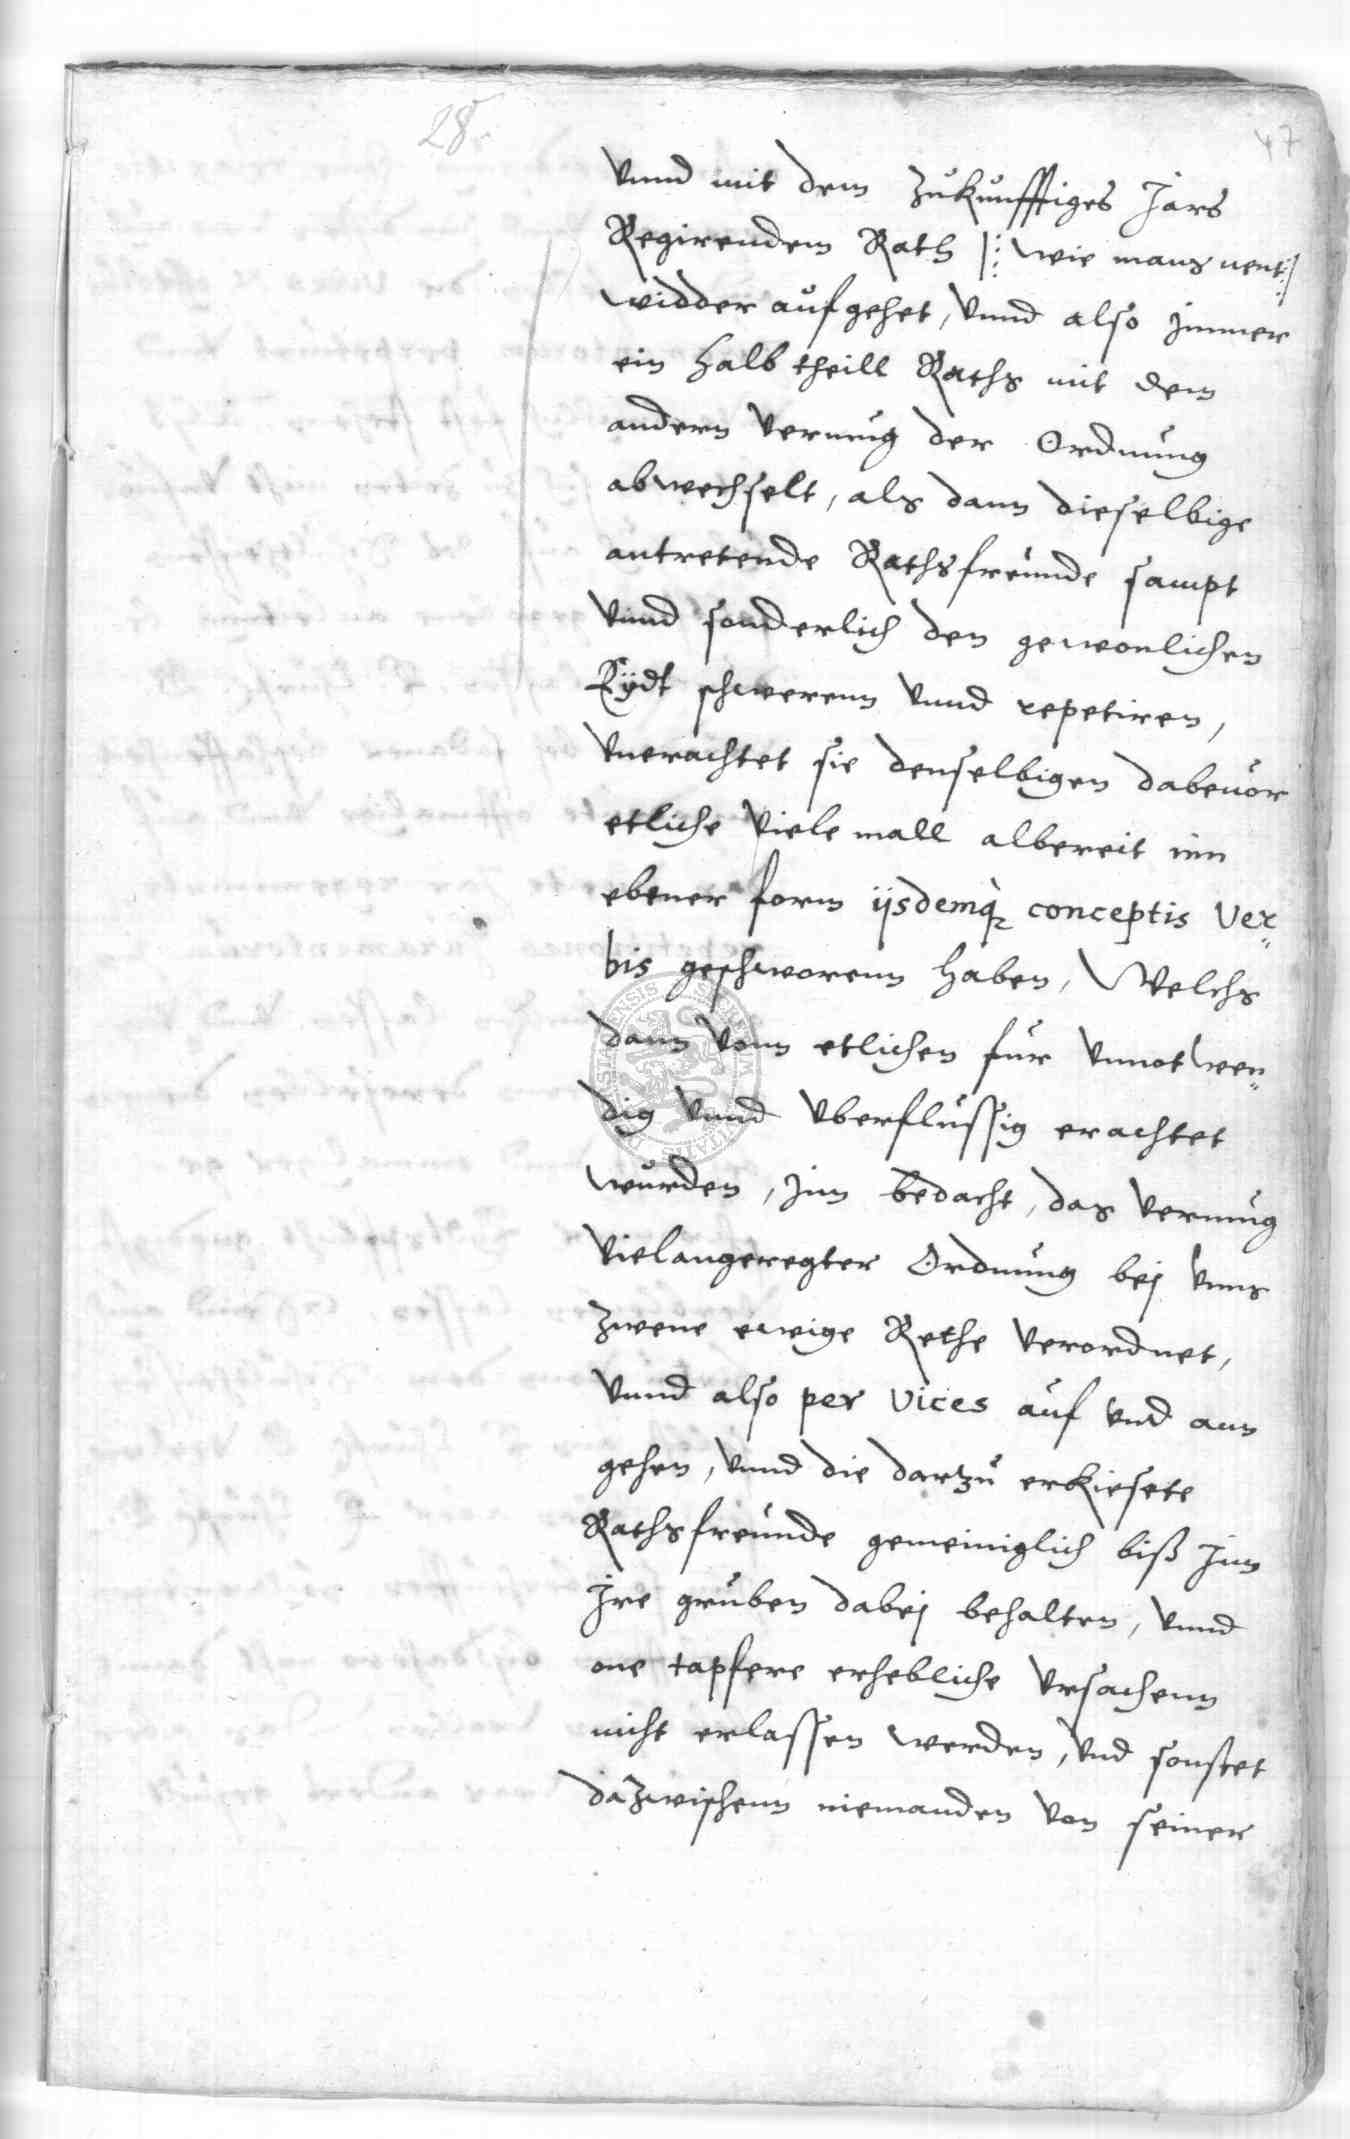 28r
47
Vnnd mit dem zukunfftiges Jars
Regirendem Rath |: wie mans nent :|
widder aufgehet, Vnnd also jmmer
ein halb theill Raths mit dem
andern vermug der Ordnung
abwechselt, als dann dieselbige
antretende Rathsfreunde sampt
Vnnd sonderlich den gewonlichen
Eydt schwerenn Vnnd repetiren,
Vnerachtet sie denselbigen dabeuor
etliche viele mall albereit inn
ebener form ijsdemq; conceptis Ver„
bis geschworenn haben, Welchs
dann Vonn etlichen fur Vnnotwen„
dig Vnnd Vberflussig erachtet
wurden, jnn bedacht, das vermug
vielangeregter Ordnung bej Vnns
zwene ewige Rethe verordnet,
Vnnd also per Vices auf Vnd ann
gehen, Vnnd die darzu erkiesete
Rathsfreunde gemeiniglich biß jnn
jre gruben dabej behalten, Vnnd
one tapfere erhebliche Vrsachenn
nicht erlassen werden, Vnd sonstet
dazwischenn niemanden Von seiner